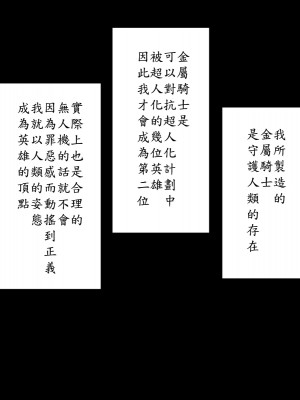 我所製造的
金屬騎士
是守護人類的存在
金屬騎士是
可以對抗超人化計劃中
被超人化的幾位英雄
因此我才會成為第二位
實際上也是合理的
無人機的話就不會
因為罪惡感而動搖到正義
我就以人類的姿態
成為英雄的頂點